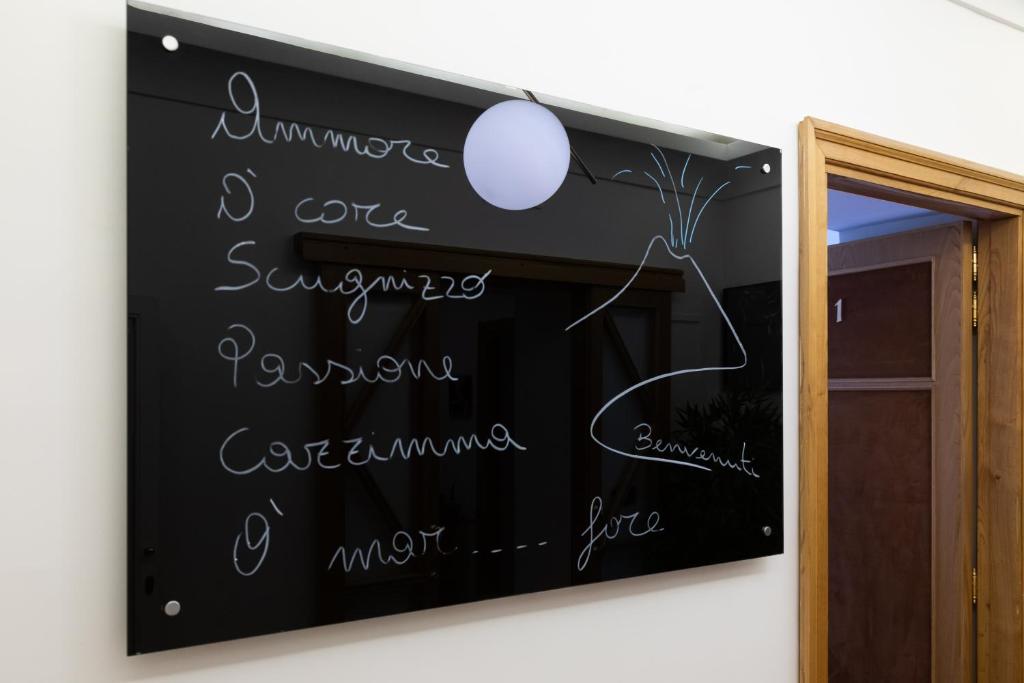 Ammore
O' core
Scugnizzo
Passione
Cazzimma
Benvenuti
O' mar..... fore
1